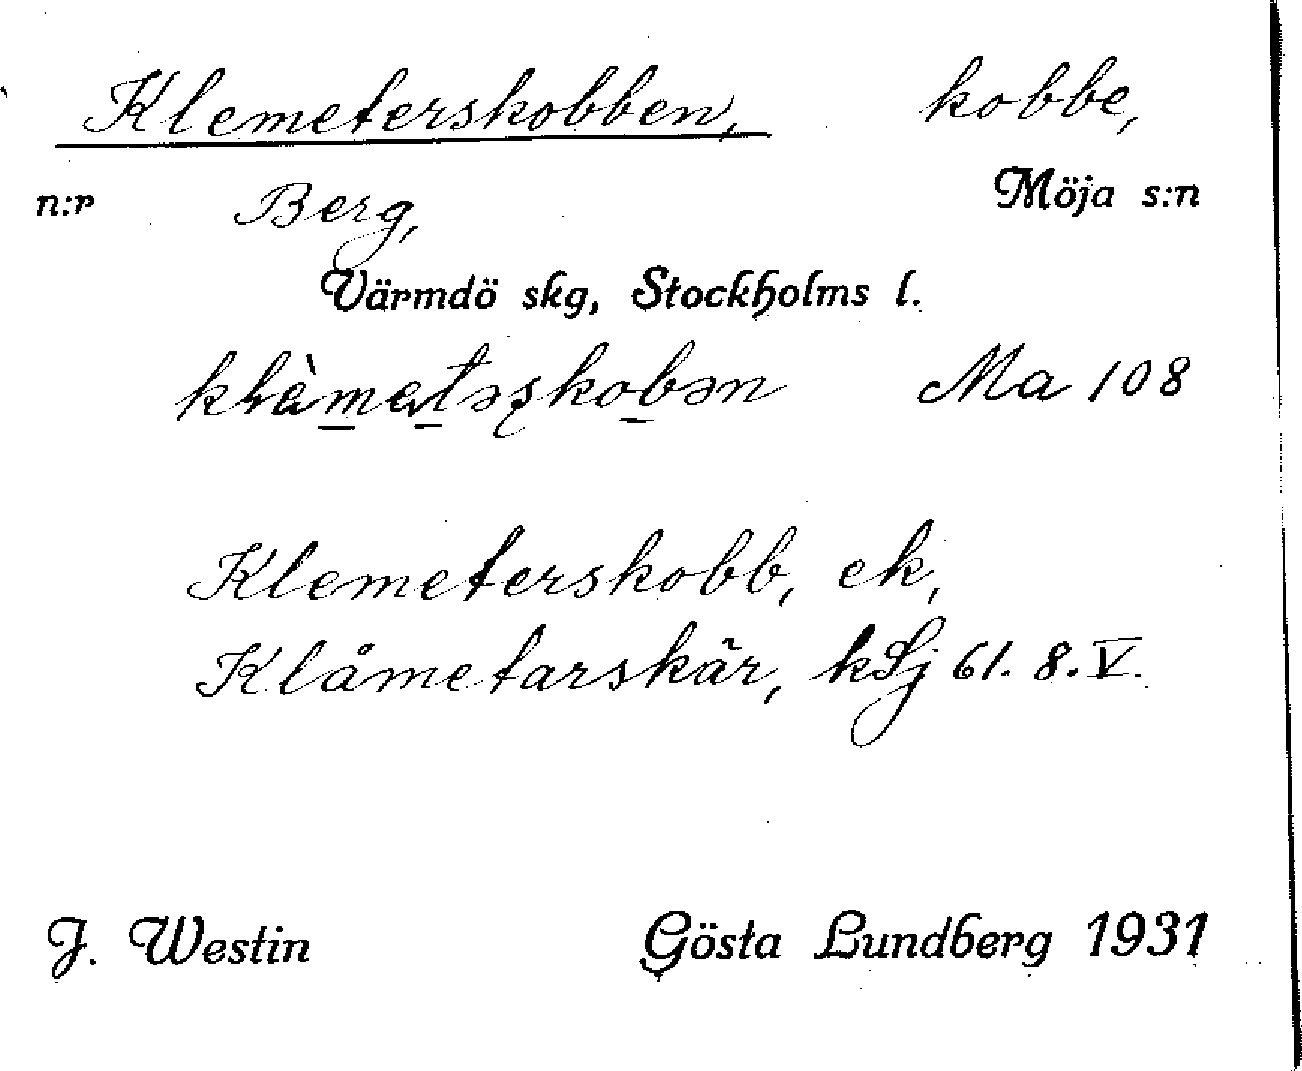 Klemeterskobben, kobbe,
n:r Berg, Möja s:n
Värmdö skg, Stockholms l.
Ma 108
Klemeterskobb, ek,
Klåmetarskär, kSj 61. 8. V.
J. Westin Gösta Lundberg 1931